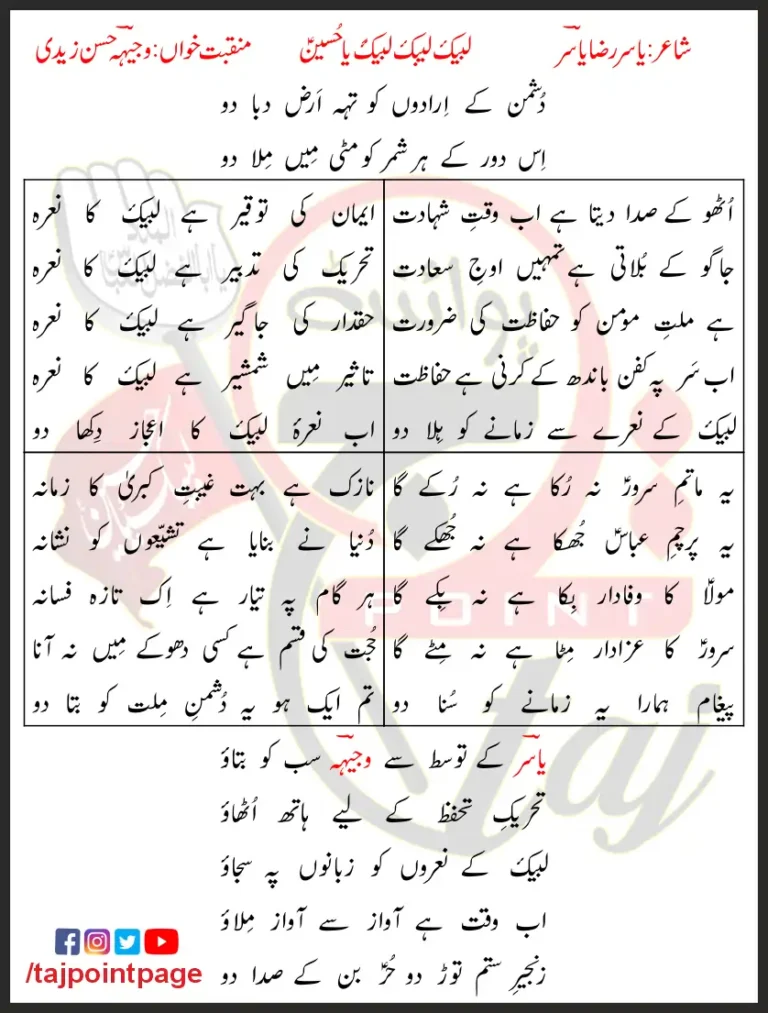 شاعر: یاسر رضا یاسرؔ
لبیکَ لبیکَ لبیکَ یا حُسینؑ
منقبت خواں: وجیہہؔ حسن زیدی
دُشمن کے اِرادوں کو تہہ اَرض دبا دو
اِس دور کے ہر شمر کو مٹی مِیں مِلا دو
اُٹھو کے صدا دیتا ہے اب وقتِ شہادت
جاگو کے بُلاتی ہے تمہیں اوجِ سعادت
ہے ملتِ مومن کو حفاظت کی ضرورت
اب سَر پہ کفن باندھ کے کرنی ہے حفاظت
لبیکَ کے نعرے سے زمانے کو ہِلا دو
ایمان کی توقیر ہے لبیکَ کا نعرہ
تحریک کی تدبیر ہے لبیکَ کا نعرہ
حقدار کی جاگیر ہے لبیکَ کا نعرہ
تاثیر مِیں شمشیر ہے لبیکَ کا نعرہ
اب نعرۂ لبیکَ کا اعجاز دِکھا دو
یہ ماتمِ سرورؑ نہ رُکا ہے نہ رُکے گا
یہ پرچمِ عباسؑ جُھکا ہے نہ جُھکے گا
مولاؑ کا وفادار بِکا ہے نہ بِکے گا
سرورؑ کا عزادار مِٹا ہے نہ مِٹے گا
پیغام ہمارا یہ زمانے کو سُنا دو
نازک ہے بہت غیبتِ کبریٰ کا زمانہ
دُنیا نے بنایا ہے تشیّعوں کو نشانہ
ہر گام پہ تیار ہے اِک تازہ فسانہ
حُجت کی قسم ہے کسی دھوکے مِیں نہ آنا
تم ایک ہو یہ دُشمنِ مِلت کو بتا دو
یاسرؔ کے توسط سے وجیہہؔ سب کو بتاؤ
تحریکِ تحفظ کے لیے ہاتھ اُٹھاؤ
لبیکَ کے نعروں کو زبانوں پہ سجاؤ
اب وقت ہے آواز سے آواز مِلاؤ
زنجیرِ ستم توڑ دو حُرؑ بن کے صدا دو
/tajpointpage
POINT
taj